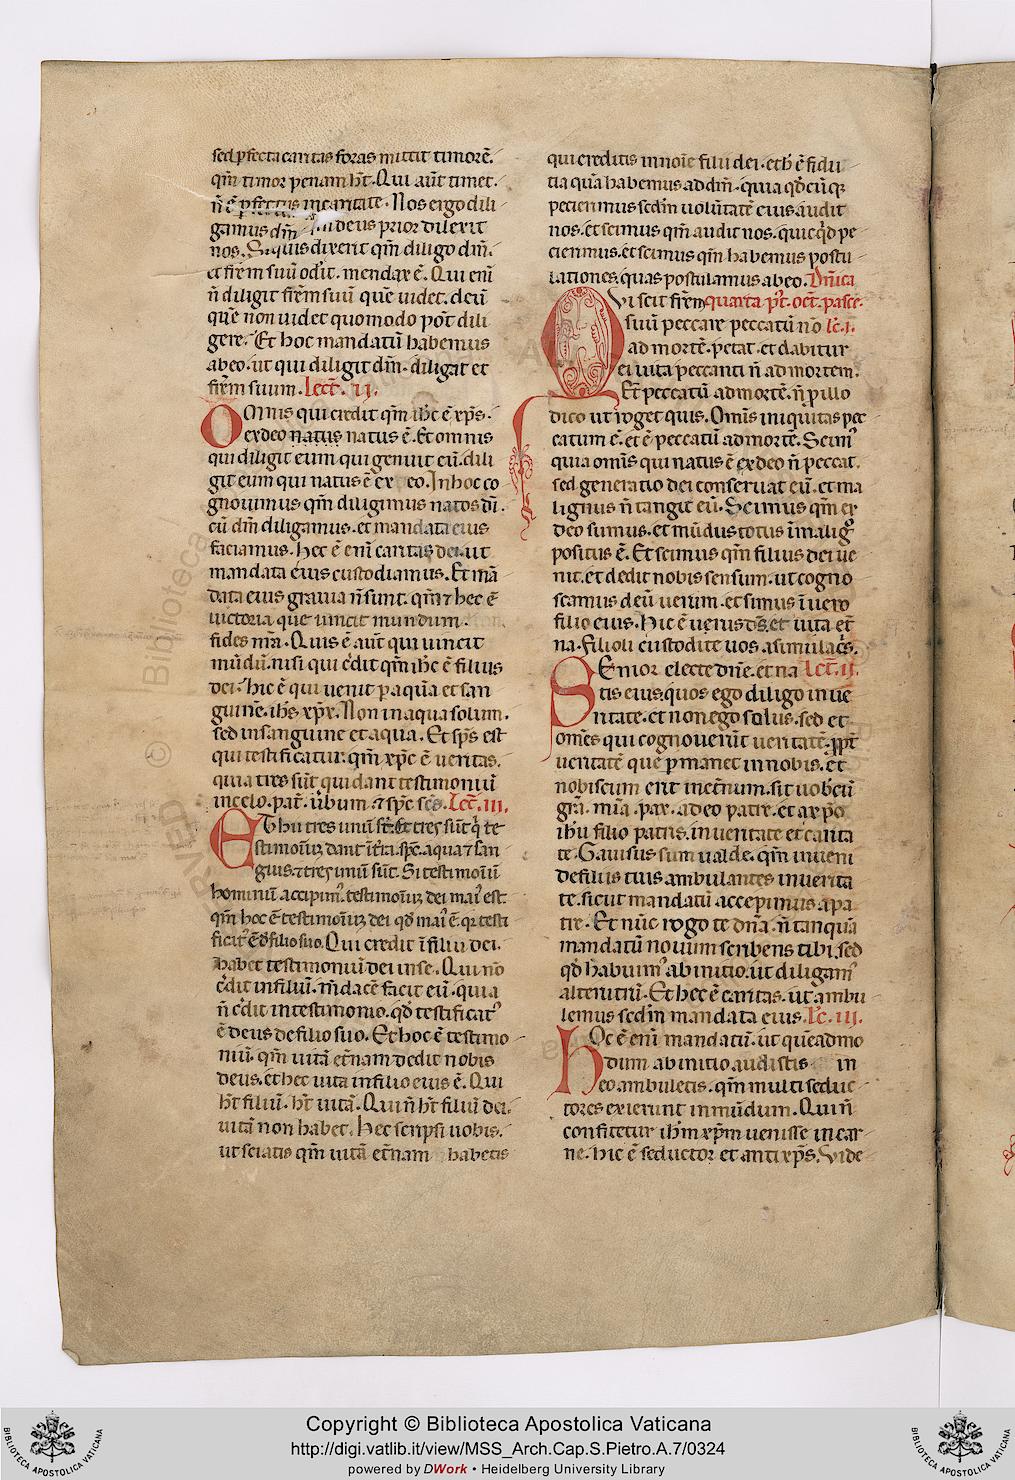 sed p̱fecta caritas foras mittit timorē.
qm̄ timor penam ht̄. Qui aūt timet.
n̄ ē p̱fectus in caritate. Nos ergo dili
gamus dm̄ deus prior dilexit
nos. Si quis dixerit qm̄ diligo dm̄.
et frēm suū odit. mendax ē. Qui eni
n̄ diligit frēm suū quē uidet. deū
quē non uidet quomodo pōt dili
gere. Et hoc mandatū habemus
a deo. ut qui diligit dm̄. diligat et
frēm suum. Lect̄. II.
Omnis qui credit qm̄ ihc̄ ē xp̄s.
ex deo natus natus ē. Et omnis
qui diligit eum qui genuit eū. dili
git eum qui natus ē ex eo. In hoc co
gnouimus qm̄ diligimus natos dī.
cū dm̄ diligamus. et mandata eius
faciamus. hec ē eni caritas dei. ut
mandata eius custodiamus. Et mā
data eius grauia n̄ sunt. qm̄ ⁊ hec ē
uictoria que uincit mundum.
fides nr̄a. Quis ē aūt qui uincit
mūdū. nisi qui c̄dit qm̄ ihc̄ ē filius
dei. hic ē qui uenit p̱ aquā et san
guinē. ihs̄ xp̄c. Non in aqua solum.
sed in sanguine et aqua. Et sp̄s est
qui testificatur. qm̄ xp̄c ē ueritas.
quia tres sūt qui dant testimoniū
in celo. pat̄. ūbum. ⁊ sp̄c sc̄s. Lect̄. III.
Et hii tres unū st̄. Et tres sūt q̄ te
stimoniū dant ī t̄ra. sp̄c. aqua ⁊ san
guis. ⁊ tres unū sūt. Si testimoniū
hominū accipim᾽. testimoniū dei mai᾽ est.
qm̄ hoc ē testimoniū dei qd̄ mai᾽ ē. qr testi
ficat᾽ ē d̄ filio suo. Qui credit ī filiū dei.
habet testimoniū dei in se. Qui nō
c̄dit in filiū. m̄dacē facit eū. quia
n̄ c̄dit in testimonio. qd̄ testificat᾽
ē deus de filio suo. Et hoc ē testimo
niū. qm̄ uitā et̄nam dedit nobis
deus. et hec uita in filio eius ē. Qui
ht̄ filiū. ht̄ uitā. Qui n̄ ht̄ filiū dei.
uitā non habet. Hec scripsi uobis.
ut sciatis qm̄ uitā et̄nam habetis
qui creditis in noīe filii dei. et h̄ ē fidu
tia quā habemus ad dm̄. quia qd̄cūq
petierimus scdm̄ uolūtatē eius audit
nos. et scimus qm̄ audit nos. quicq̄d pe
tierimus. et scimus qm̄ habemus postu
lationes. quas postulamus ab eo. Dn̄ica
Qui scit frēm quarta p̄t. oct̄. pasce.
suū peccare peccatū nō lc̄. I.
ad mortē. petat. et dabitur
ei uita peccanti n̄ ad mortem.
Et ē peccatū ad mortē. n̄ p̱ illo
dico ut roget quis. Omīs iniquitas pec
catum ē. et ē peccatū ad mortē. Scim᾽
quia omīs qui natus ē ex deo n̄ peccat.
sed generatio dei conseruat eū. et ma
lignus n̄ tangit eū. Scimus qm̄ ex
deo sumus. et mūdus totus ī malig͛
positus ē. Et scimus qm̄ filius dei ue
nit. et dedit nobis sensum. ut cogno
scamus deū uerum. et simus ī uero
filio eius. Hic ē uerus ds̄. et uita et̄
na. Filioli custodite uos. a simulac̄s.
Senior electe dn̄e. et na Lect̄. II.
tis eius. quos ego diligo in ue
ritate. et non ego solus. sed et
omēs qui cognouerūt ueritatē. ꝓpt̄
ueritatē que p̱manet in nobis. et
nobiscum erit in et̄num. sit uobcū
gr̄a. mīa. pax. a deo patre. et a xp̄o
ihū filio patris. in ueritate et carita
te. Gauisus sum ualde. qm̄ inueni
de filiis tuis ambulantes in uerita
te. sicut mandatū accepimus a pa
tre. Et nūc rogo te dn̄a. n̄ tanquā
mandatū nouum scribens tibi. sed
qd̄ habuim᾽ ab initio. ut diligam᾽
alterutrū. Et hec ē caritas. ut ambu
lemus scdm̄ mandata eius. lc̄. III.
Hoc ē enī mandatū. ut quēadmo
dum ab initio audistis in
eo ambuletis. qm̄ multi seduc
tores exierunt in mūdum. Qui n̄
confitetur ihm̄ xp̄m uenisse in car
ne. hic ē seductor et antixp̄s. Vide
Copyright © Biblioteca Apostolica Vaticana
http://digi.vatlib.it/view/MSS_Arch.Cap.S.Pietro.A.7/0324
powered by DWork • Heidelberg University Library
BIBLIOTECA APOSTOLICA VATICANA
BIBLIOTECA APOSTOLICA VATICANA